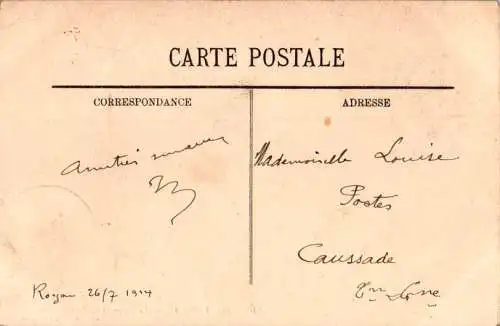 CARTE POSTALE
CORRESPONDANCE
Amitiés
Royan 26/7 1914
ADRESSE
Mademoiselle Louise
Postes
Caussade
Tn Gne